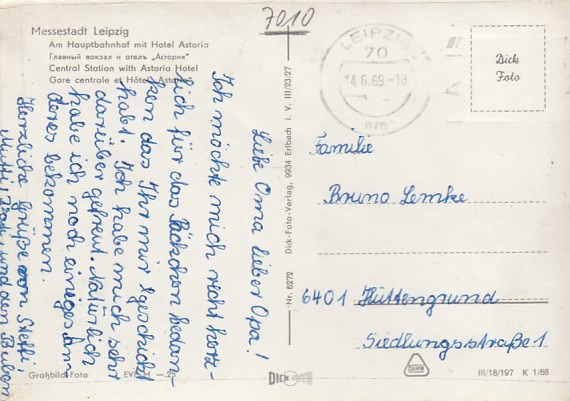 7010
Messestadt Leipzig
Am Hauptbahnhof mit Hotel Astoria
Главный вокзал и отель „Астория"
Central Station with Astoria Hotel
Gare centrale et Hôtel Astoria
Liebe Oma lieber Opa!
Ich möchte mich recht herz-
lich für das Päckchen bedan-
ken das Ihr mir geschickt
habt. Ich habe mich sehr
darüber gefreut. Natürlich
habe ich noch einiges an-
deres bekommen.
Herzliche Grüße von Steffi,
Mutti, Vati, und den Buben
Großbild-Foto
EVP M -.25
Nr. 6272 Dick-Foto-Verlag, 9934 Erlbach i. V. III/23/27
DICK
LEIPZIG
70
14.6.69-18
Dick
Foto
Familie
Bruno Lemke
6401 Hüttengrund
Siedlungsstraße 1
III/18/197 K 1/68